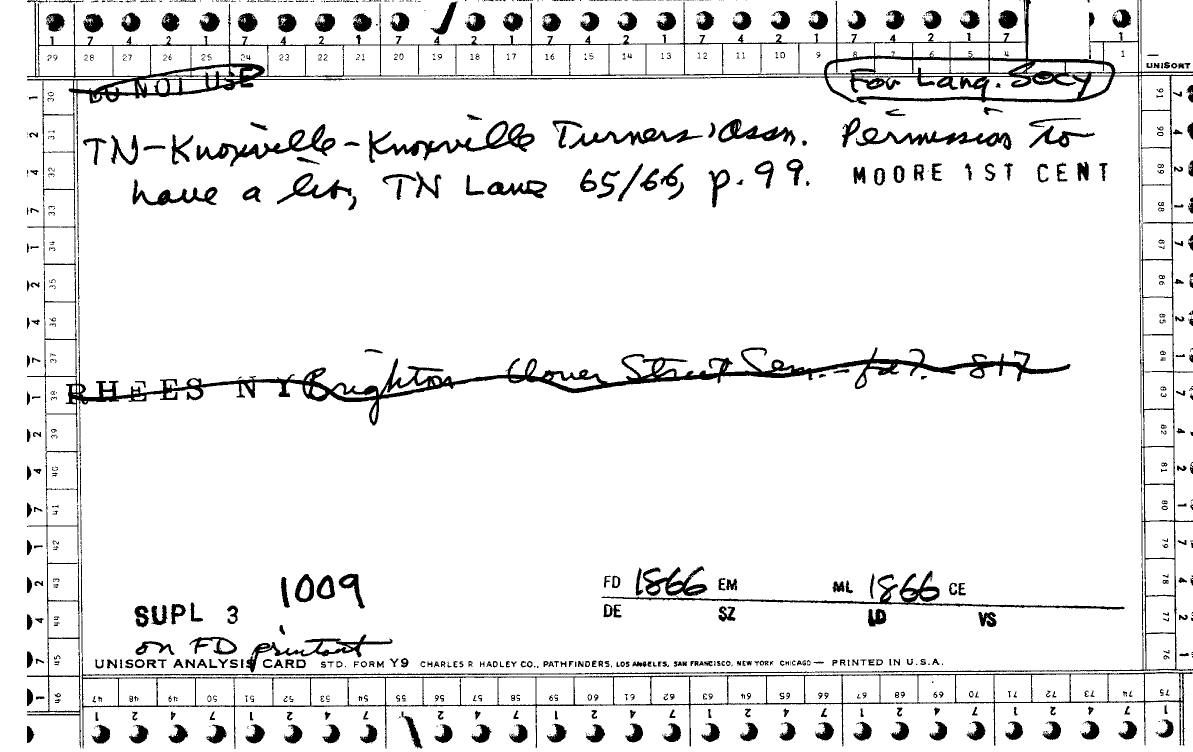 1 7 4 2 1 7 4 2 1 7 4 2 1 7 4 2 1 7 4 2 1 7 4 2 1 7 4 1
29 28 27 26 25 24 23 22 21 20 19 18 17 16 15 14 13 12 11 10 9 8 7 6 5 4 1
UNISORT
DO NOT USE
For Lang. Socy
TN-Knoxville-Knoxville Turners' Assn. Permission to
have a lib, TN Laws 65/66, p. 99. MOORE 1ST CENT
RHEES NY Brighton Clover Street Sem. - fd ?. - 817
1009
SUPL 3
on FD printout
FD 1866 EM ML 1866 CE
DE SZ LD VS
UNISORT ANALYSIS CARD STD. FORM Y9 CHARLES R HADLEY CO., PATHFINDERS, LOS ANGELES, SAN FRANCISCO, NEW YORK CHICAGO — PRINTED IN U.S.A.
47 48 49 50 51 52 53 54 55 56 57 58 59 60 61 62 63 64 65 66 67 68 69 70 71 72 73 74 75